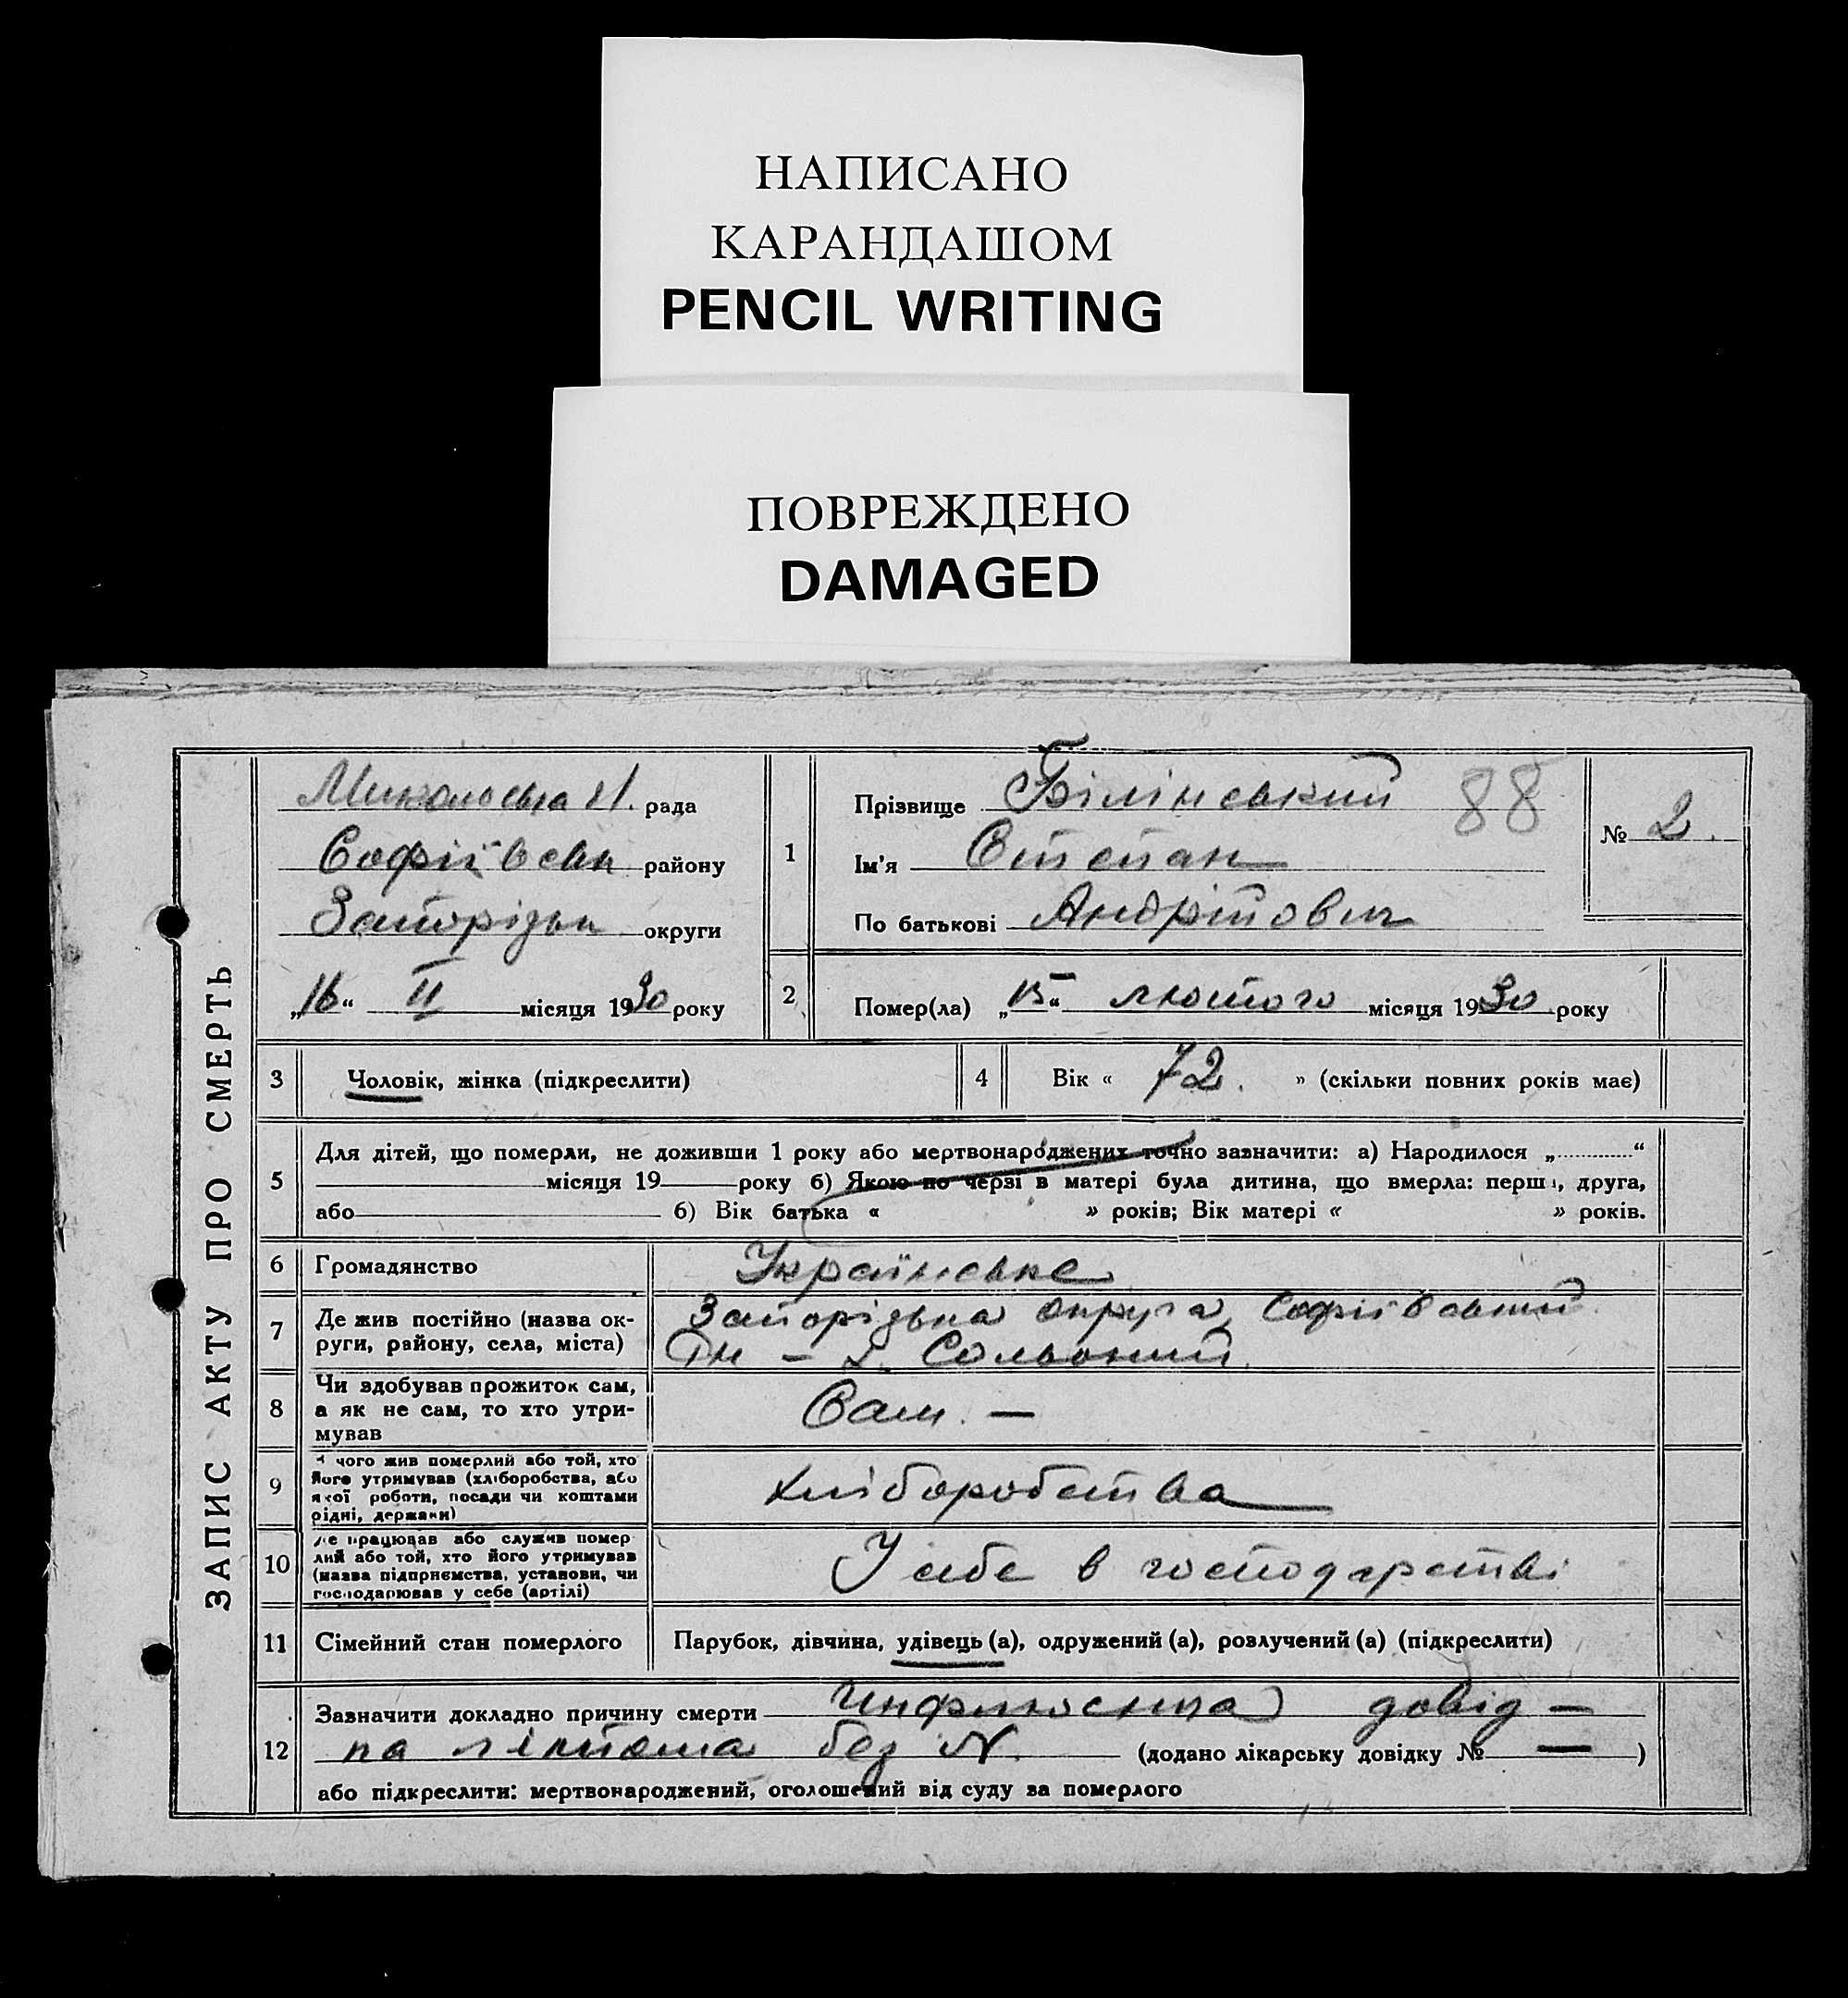 НАПИСАНО
КАРАНДАШОМ
PENCIL WRITING
ПОВРЕЖДЕНО
DAMAGED
ЗАПИС АКТУ ПРО СМЕРТЬ
рада
Софіївськ району
Запорізьк округи
„16“ II місяця 1930 року
1
Прізвище Білінський 88
Ім'я Степан
По батькові Андрійович
№ 2.
2
Помер(ла) „15“ лютого місяця 1930 року
3 Чоловік, жінка (підкреслити)
4 Вік « 72. » (скільки повних років має)
5
Для дітей, що померли, не доживши 1 року або мертвонароджених точно зазначити: а) Народилося „ “
місяця 19 року б) Якою по черзі в матері була дитина, що вмерла: перш, друга,
або б) Вік батька « » років; Вік матері « » років.
6 Громадянство Українське
7
Де жив постійно (назва ок-
руги, району, села, міста)
Запорізька округа, Софіївський
8
Чи здобував прожиток сам,
а як не сам, то хто утри-
мував
Сам. —
9
чого жив померлий або той, хто
його утримував (хліборобства, або
якої роботи, посади чи коштами
рідні, держави)
хліборобства
10
Де працював або служив помер
лий або той, хто його утримував
(назва підприємства, установи, чи
господарював у себе (артілі)
У себе в господарстві
11 Сімейний стан померлого Парубок, дівчина, удівець (а), одружений (а), розлучений (а) (підкреслити)
12
Зазначити докладно причину смерти Инфлюенца довід —
ка без N. (додано лікарську довідку № — )
або підкреслити: мертвонароджений, оголошений від суду за померлого